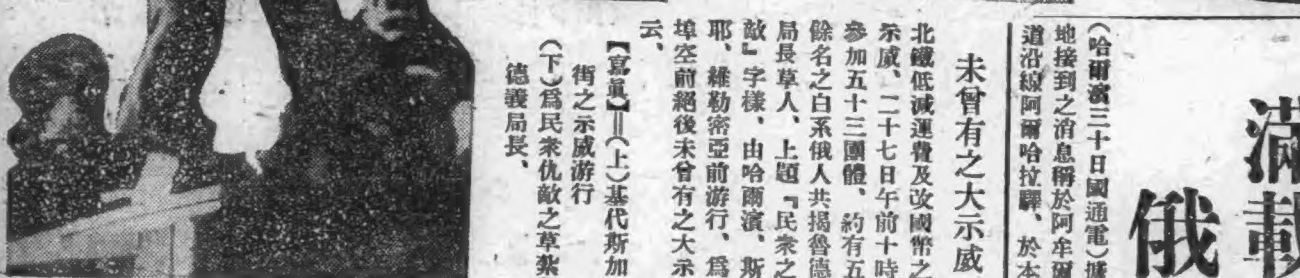 滿載
俄
(哈爾濱三十日國通電)據
地接到之消息稱於阿牟爾
道沿線阿爾哈拉驛、於本
未曾有之大示威
北鐵低減運費及改國幣之
示威、二十七日午前十時
參加五十三團體、約有五
餘名之白系俄人共揭魯德
局長草人、上題『民衆之
敵』字樣、由哈爾濱、斯
耶、維勒密亞前游行、爲
埠空前絕後未曾有之大示
云、
【寫眞】＝(上)基代斯加
街之示威游行
(下)爲民衆仇敵之草紮
德義局長、